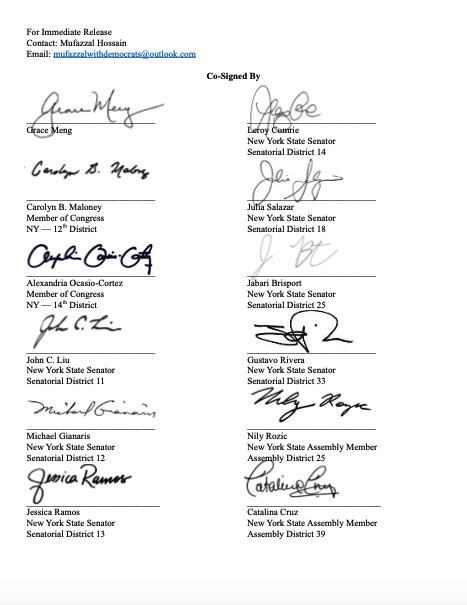 For Immediate Release
Contact: Mufazzal Hossain
Email: mufazzalwithdemocrats@outlook.com
Co-Signed By
Grace Meng
Grace Meng
Carolyn B. Maloney
Carolyn B. Maloney
Member of Congress
NY — 12th District
Alexandria Ocasio-Cortez
Member of Congress
NY — 14th District
John C. Liu
John C. Liu
New York State Senator
Senatorial District 11
Michael Gianaris
Michael Gianaris
New York State Senator
Senatorial District 12
Jessica Ramos
Jessica Ramos
New York State Senator
Senatorial District 13
Leroy Comrie
New York State Senator
Senatorial District 14
Julia Salazar
New York State Senator
Senatorial District 18
Jabari Brisport
New York State Senator
Senatorial District 25
Gustavo Rivera
New York State Senator
Senatorial District 33
Nily Rozic
Nily Rozic
New York State Assembly Member
Assembly District 25
Catalina Cruz
Catalina Cruz
New York State Assembly Member
Assembly District 39